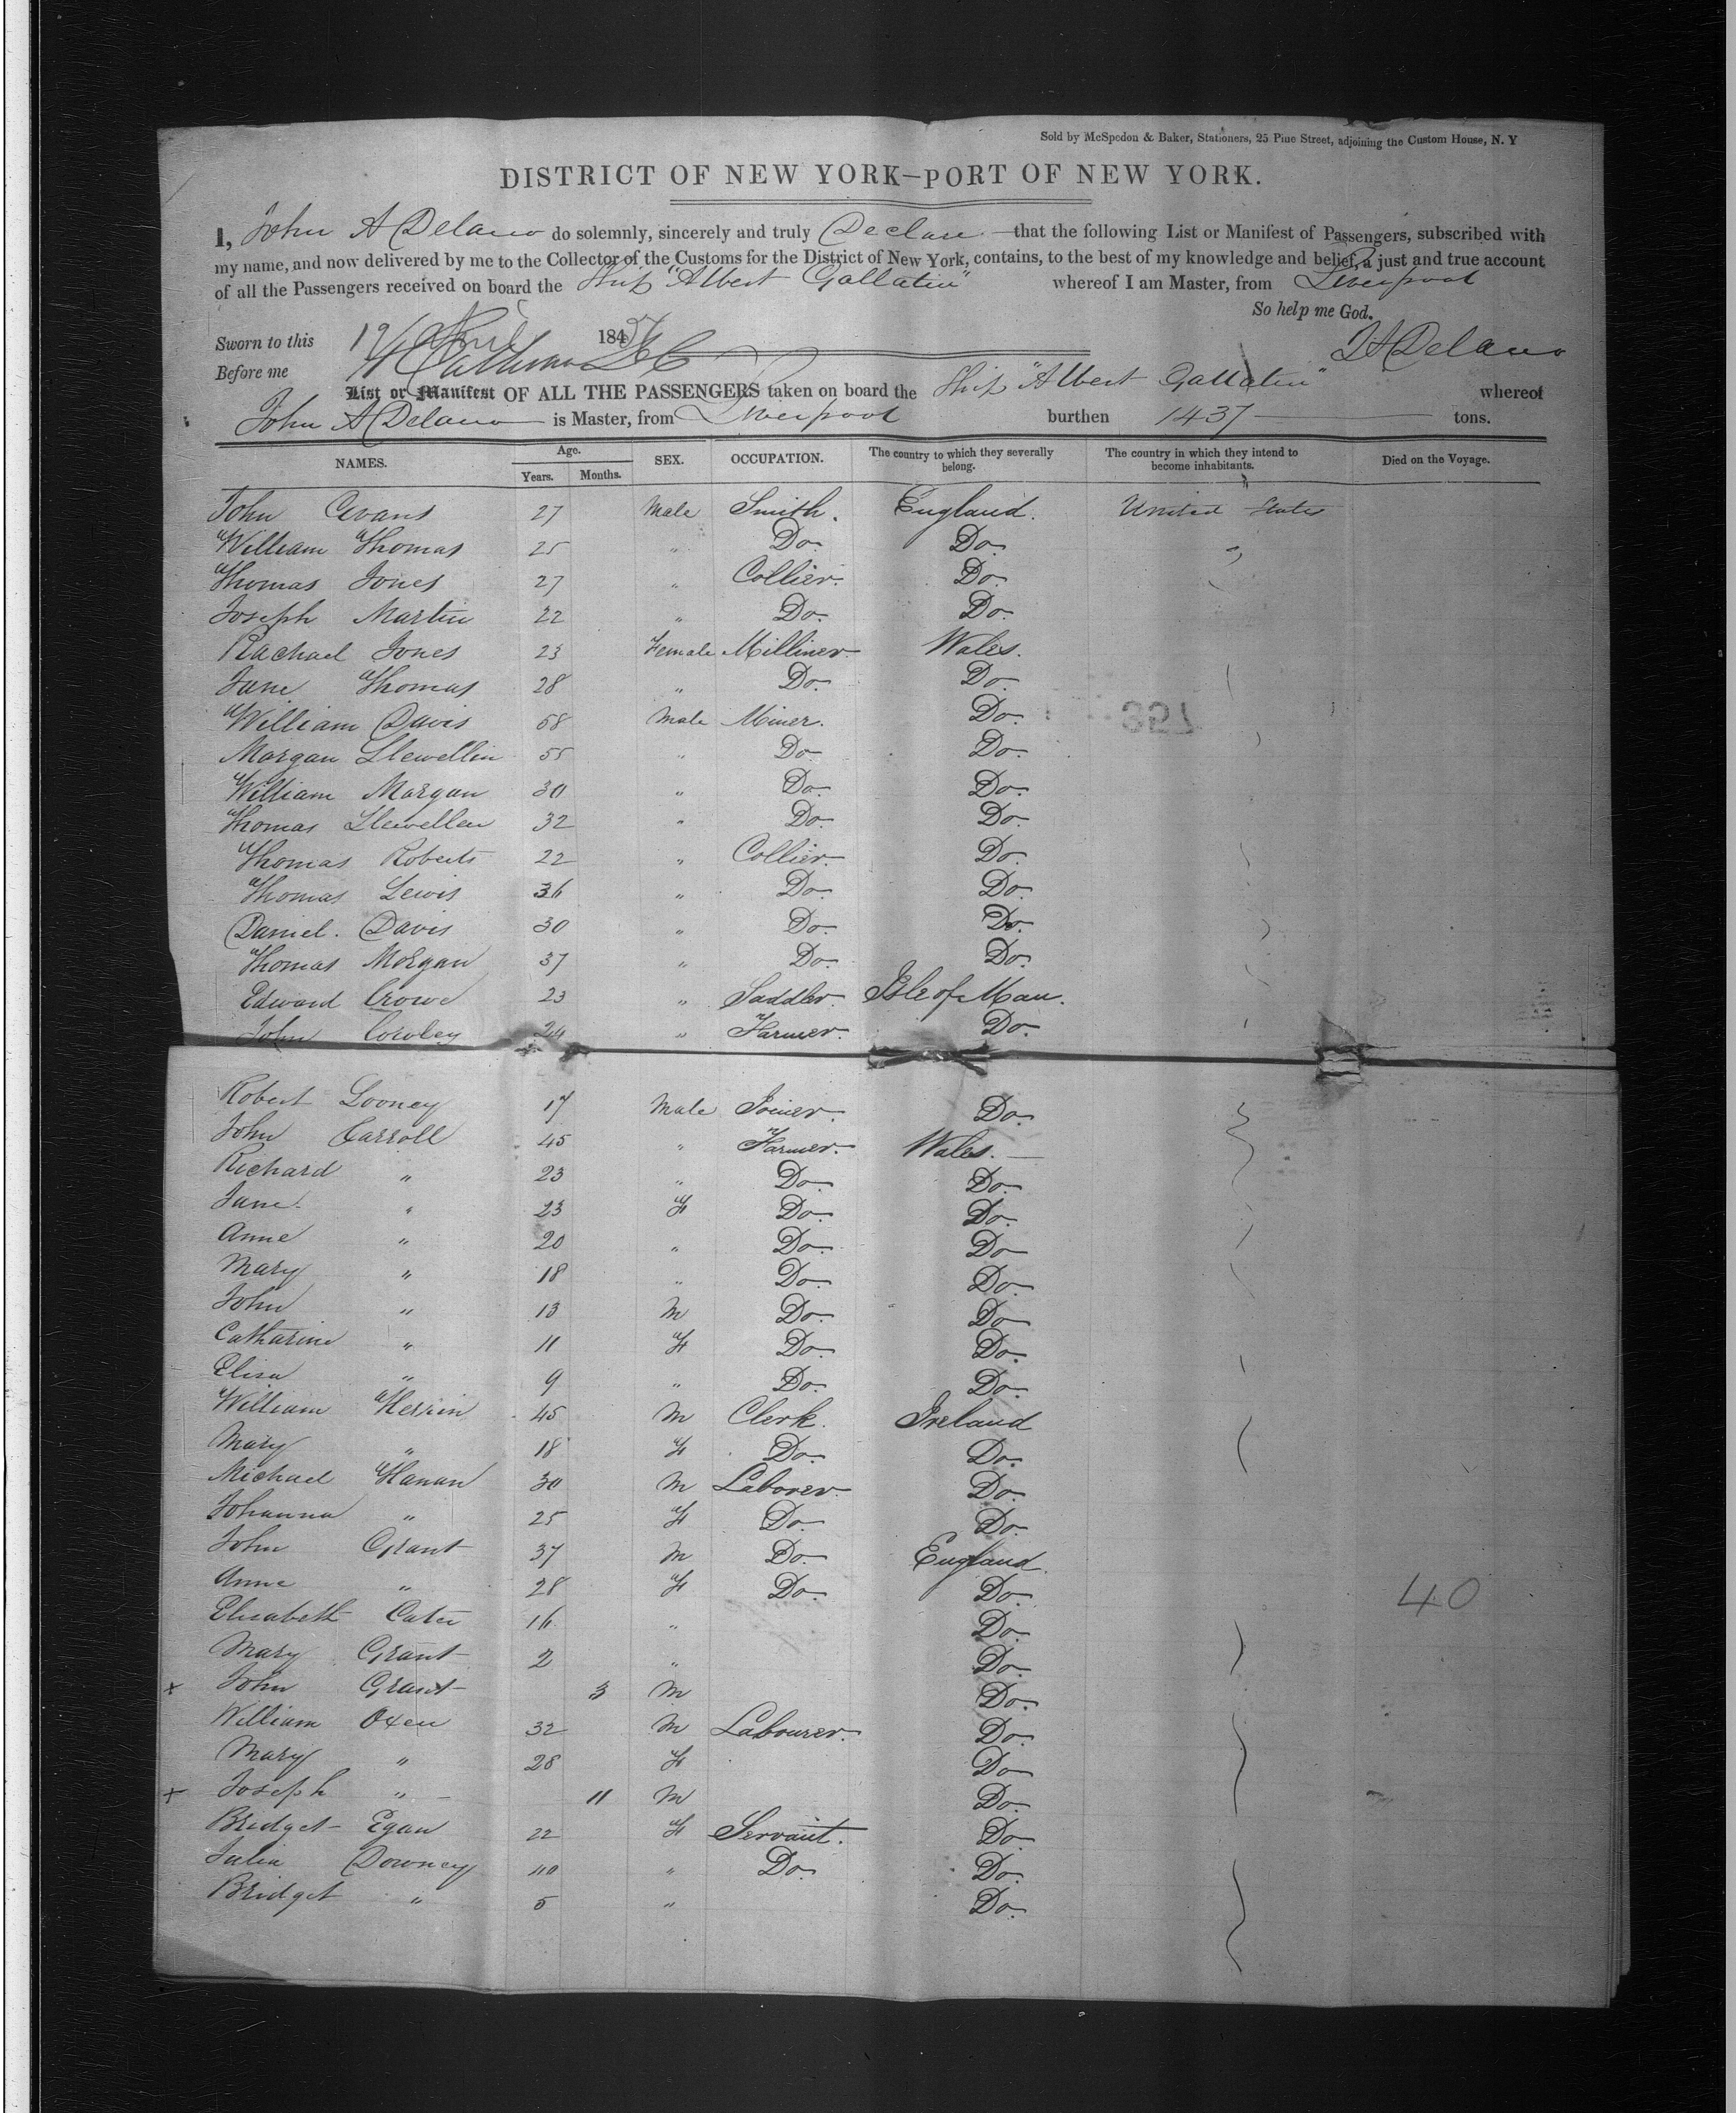 Sold by McSpedon & Baker, Stationers, 25 Pine Street, adjoining the Custom House, N. Y
DISTRICT OF NEW YORK—PORT OF NEW YORK.
I, John A Delano do solemnly, sincerely and truly Declare that the following List or Manifest of Passengers, subscribed with
my name, and now delivered by me to the Collector of the Customs for the District of New York, contains, to the best of my knowledge and belief, a just and true account
of all the Passengers received on board the Ship "Albert Gallatin" whereof I am Master, from Liverpool
So help me God.
Sworn to this 19 April 184
Before me
JA Delano
List or Manifest OF ALL THE PASSENGERS taken on board the Ship "Albert Gallatin" whereof
John A Delano is Master, from Liverpool burthen 1437 tons.
NAMES. Age. Years. Months. SEX. OCCUPATION. The country to which they severally belong. The country in which they intend to become inhabitants. Died on the Voyage.
John Evans 27 Male Smith. England. United States
William Thomas 25 " Do. Do. "
Thomas Jones 27 " Collier. Do.
Joseph Martin 22 " Do. Do.
Rachael Jones 23 Female Milliner Wales.
Jane Thomas 28 " Do. Do.
William Davis 68 Male Miner. Do.
Morgan Llewellin 55 " Do Do.
William Morgan 30 " Do. Do.
Thomas Llewellen 32 " Do. Do.
Thomas Roberts 22 " Collier. Do.
Thomas Lewis 36 " Do. Do.
Daniel. Davis 30 " Do. Do.
Thomas Morgan 37 " Do. Do.
Edward Crowe 23 " Saddler. Isle of Man.
John Cowley 24 " Farmer. Do.
Robert Looney 17 Male Joiner. Do.
John Carroll 45 " Farmer. Wales.
Richard " 23 " Do. Do.
Jane. " 23 F Do. Do.
Anne " 20 " Do. Do
Mary " 18 " Do. Do.
John " 13 M Do. Do
Catharine " 11 F Do. Do.
Elisa " 9 " Do. Do.
William Herrin 45 M Clerk. Ireland
Mary " 18 F Do. Do.
Michael Hanan 30 M Laborer Do.
Johanna " 25 F Do. Do.
John Grant 37 M Do. England.
Anne " 28 F Do. Do.
40
Elisabeth 16 " Do.
Mary Grant 2 " Do.
x John Grant 3 M Do.
William Oxen 32 M Labourer. Do.
Mary " 28 F Do
x Joseph " 11 M Do.
Bridget Egan 22 F Servant. Do.
Julia Downey 40 " Do. Do.
Bridget " 5 " Do.